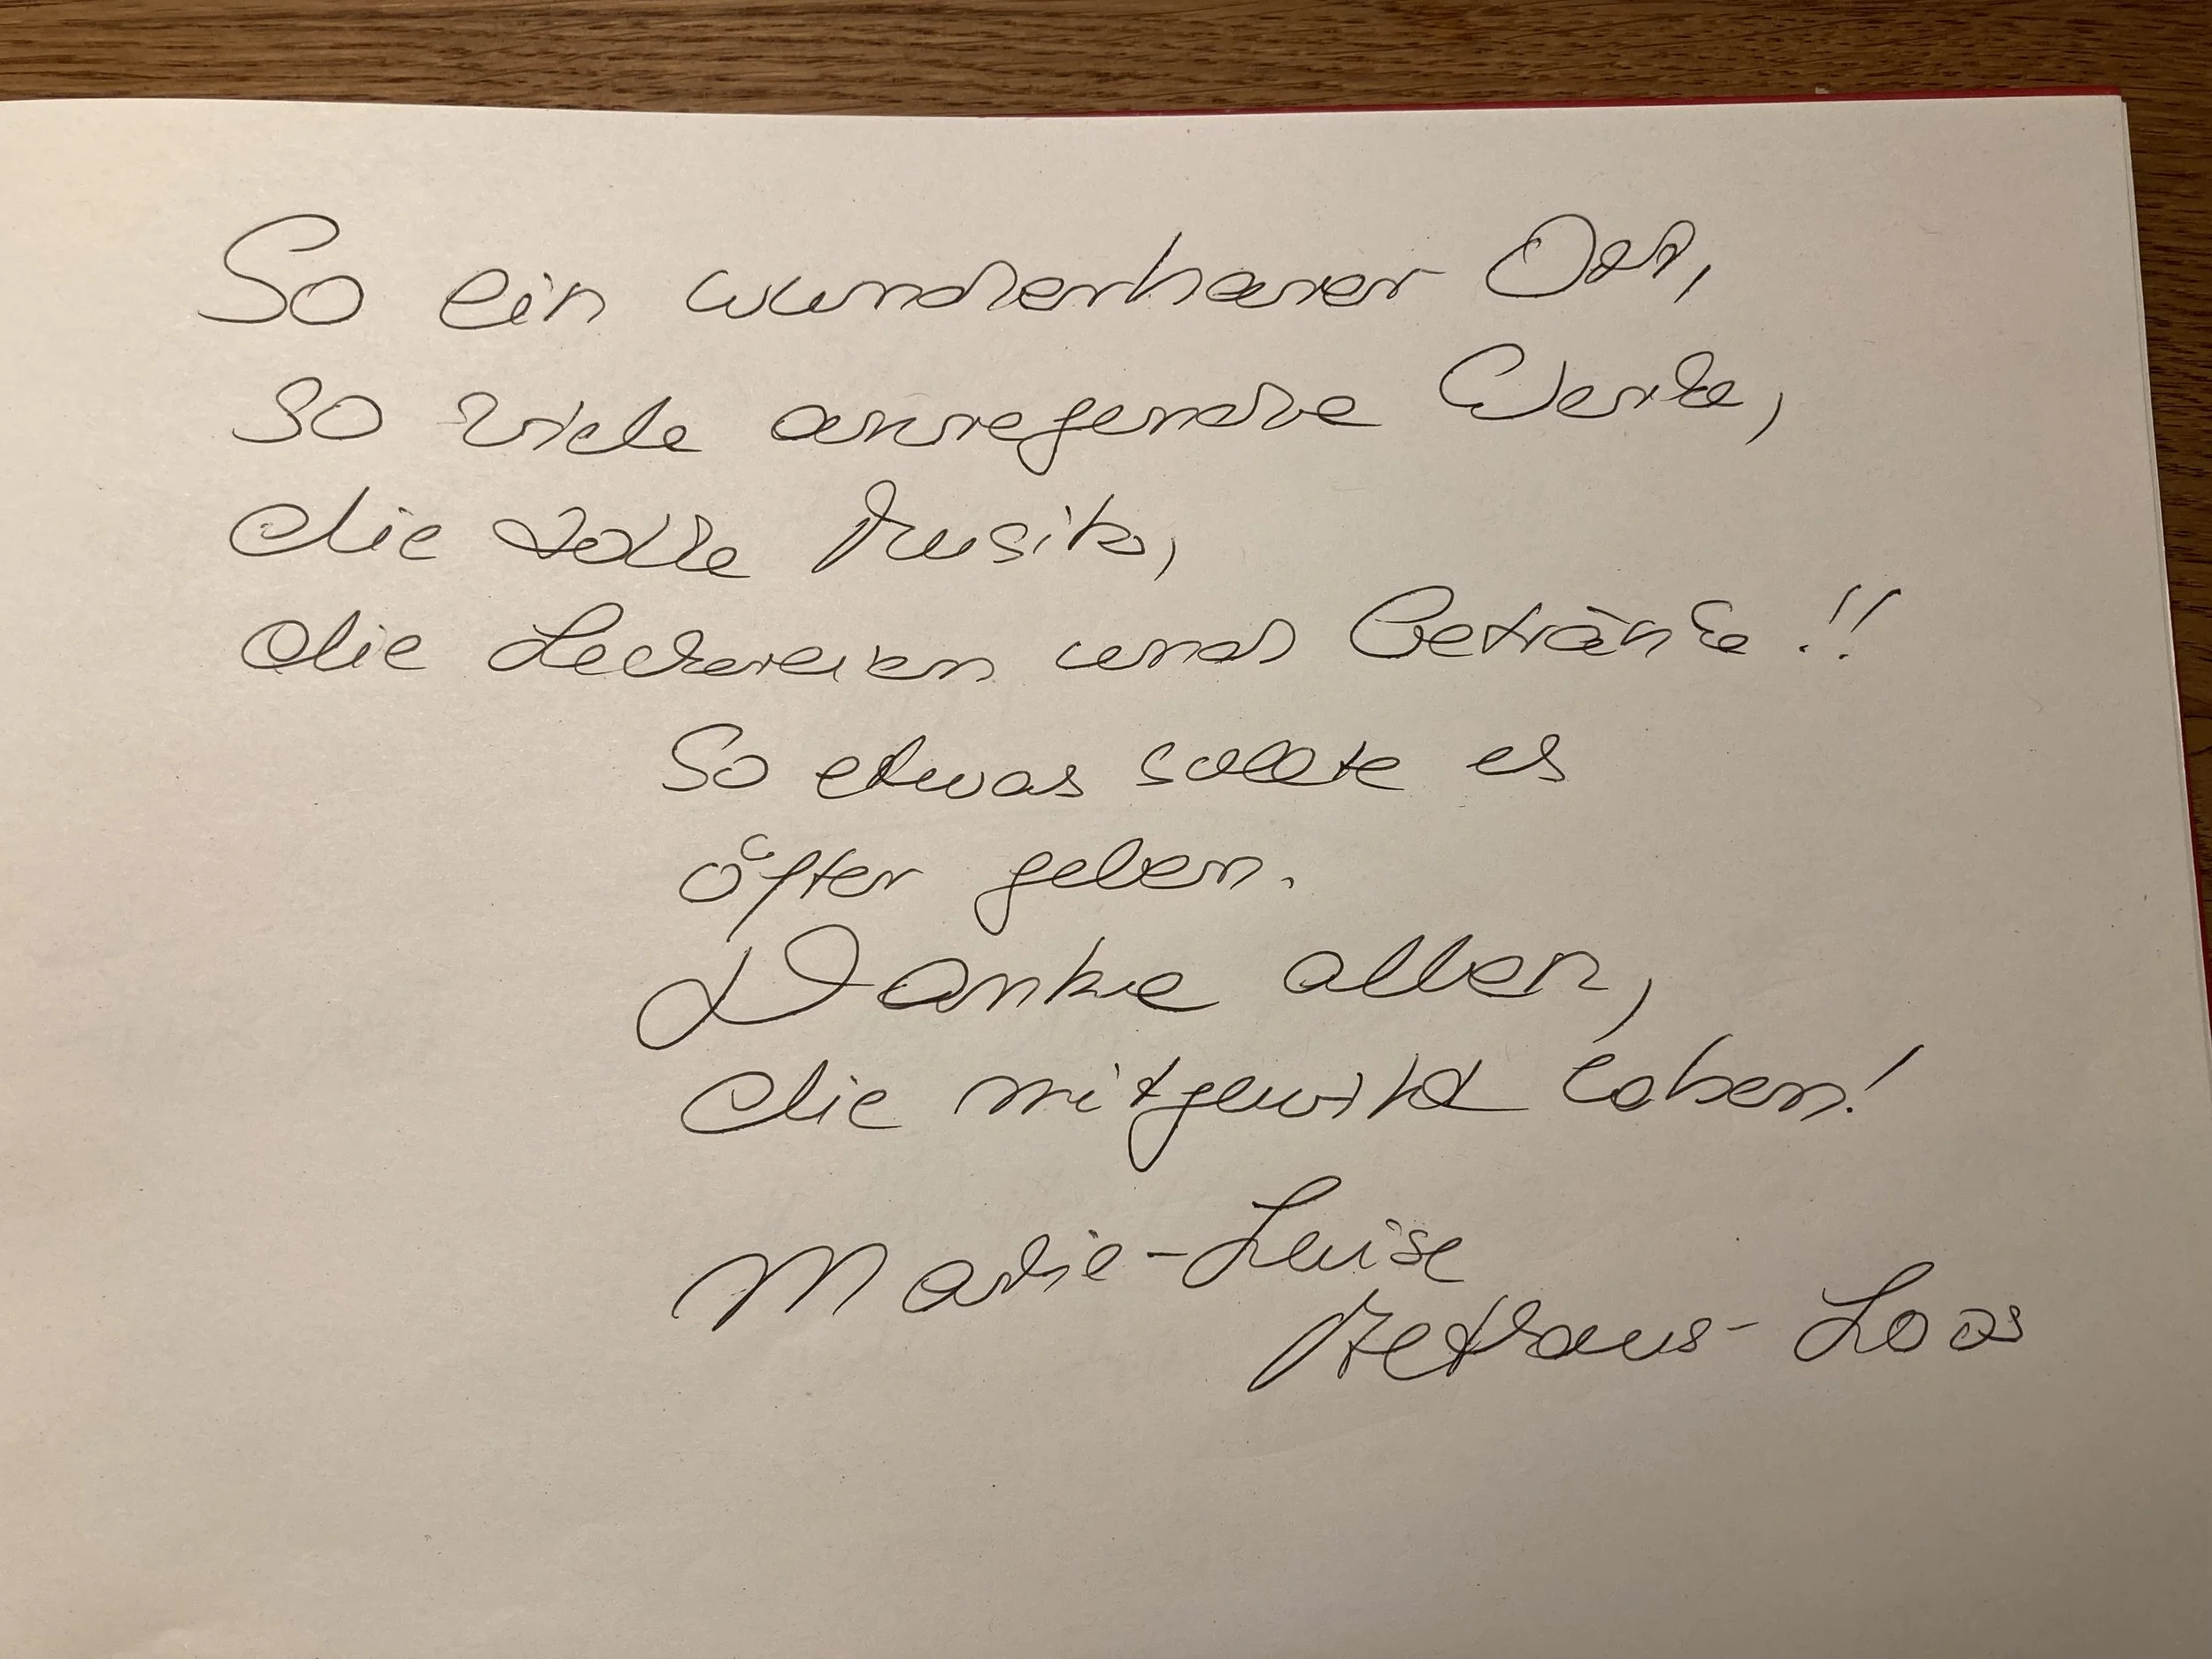 So ein wunderbarer Ort,
so viele anregende Werke,
die tolle Musik,
die Leckereien und Getränke!!
So etwas sollte es
öfter geben.
Danke allen,
die mitgewirkt haben!
Marie-Luise
-Loos